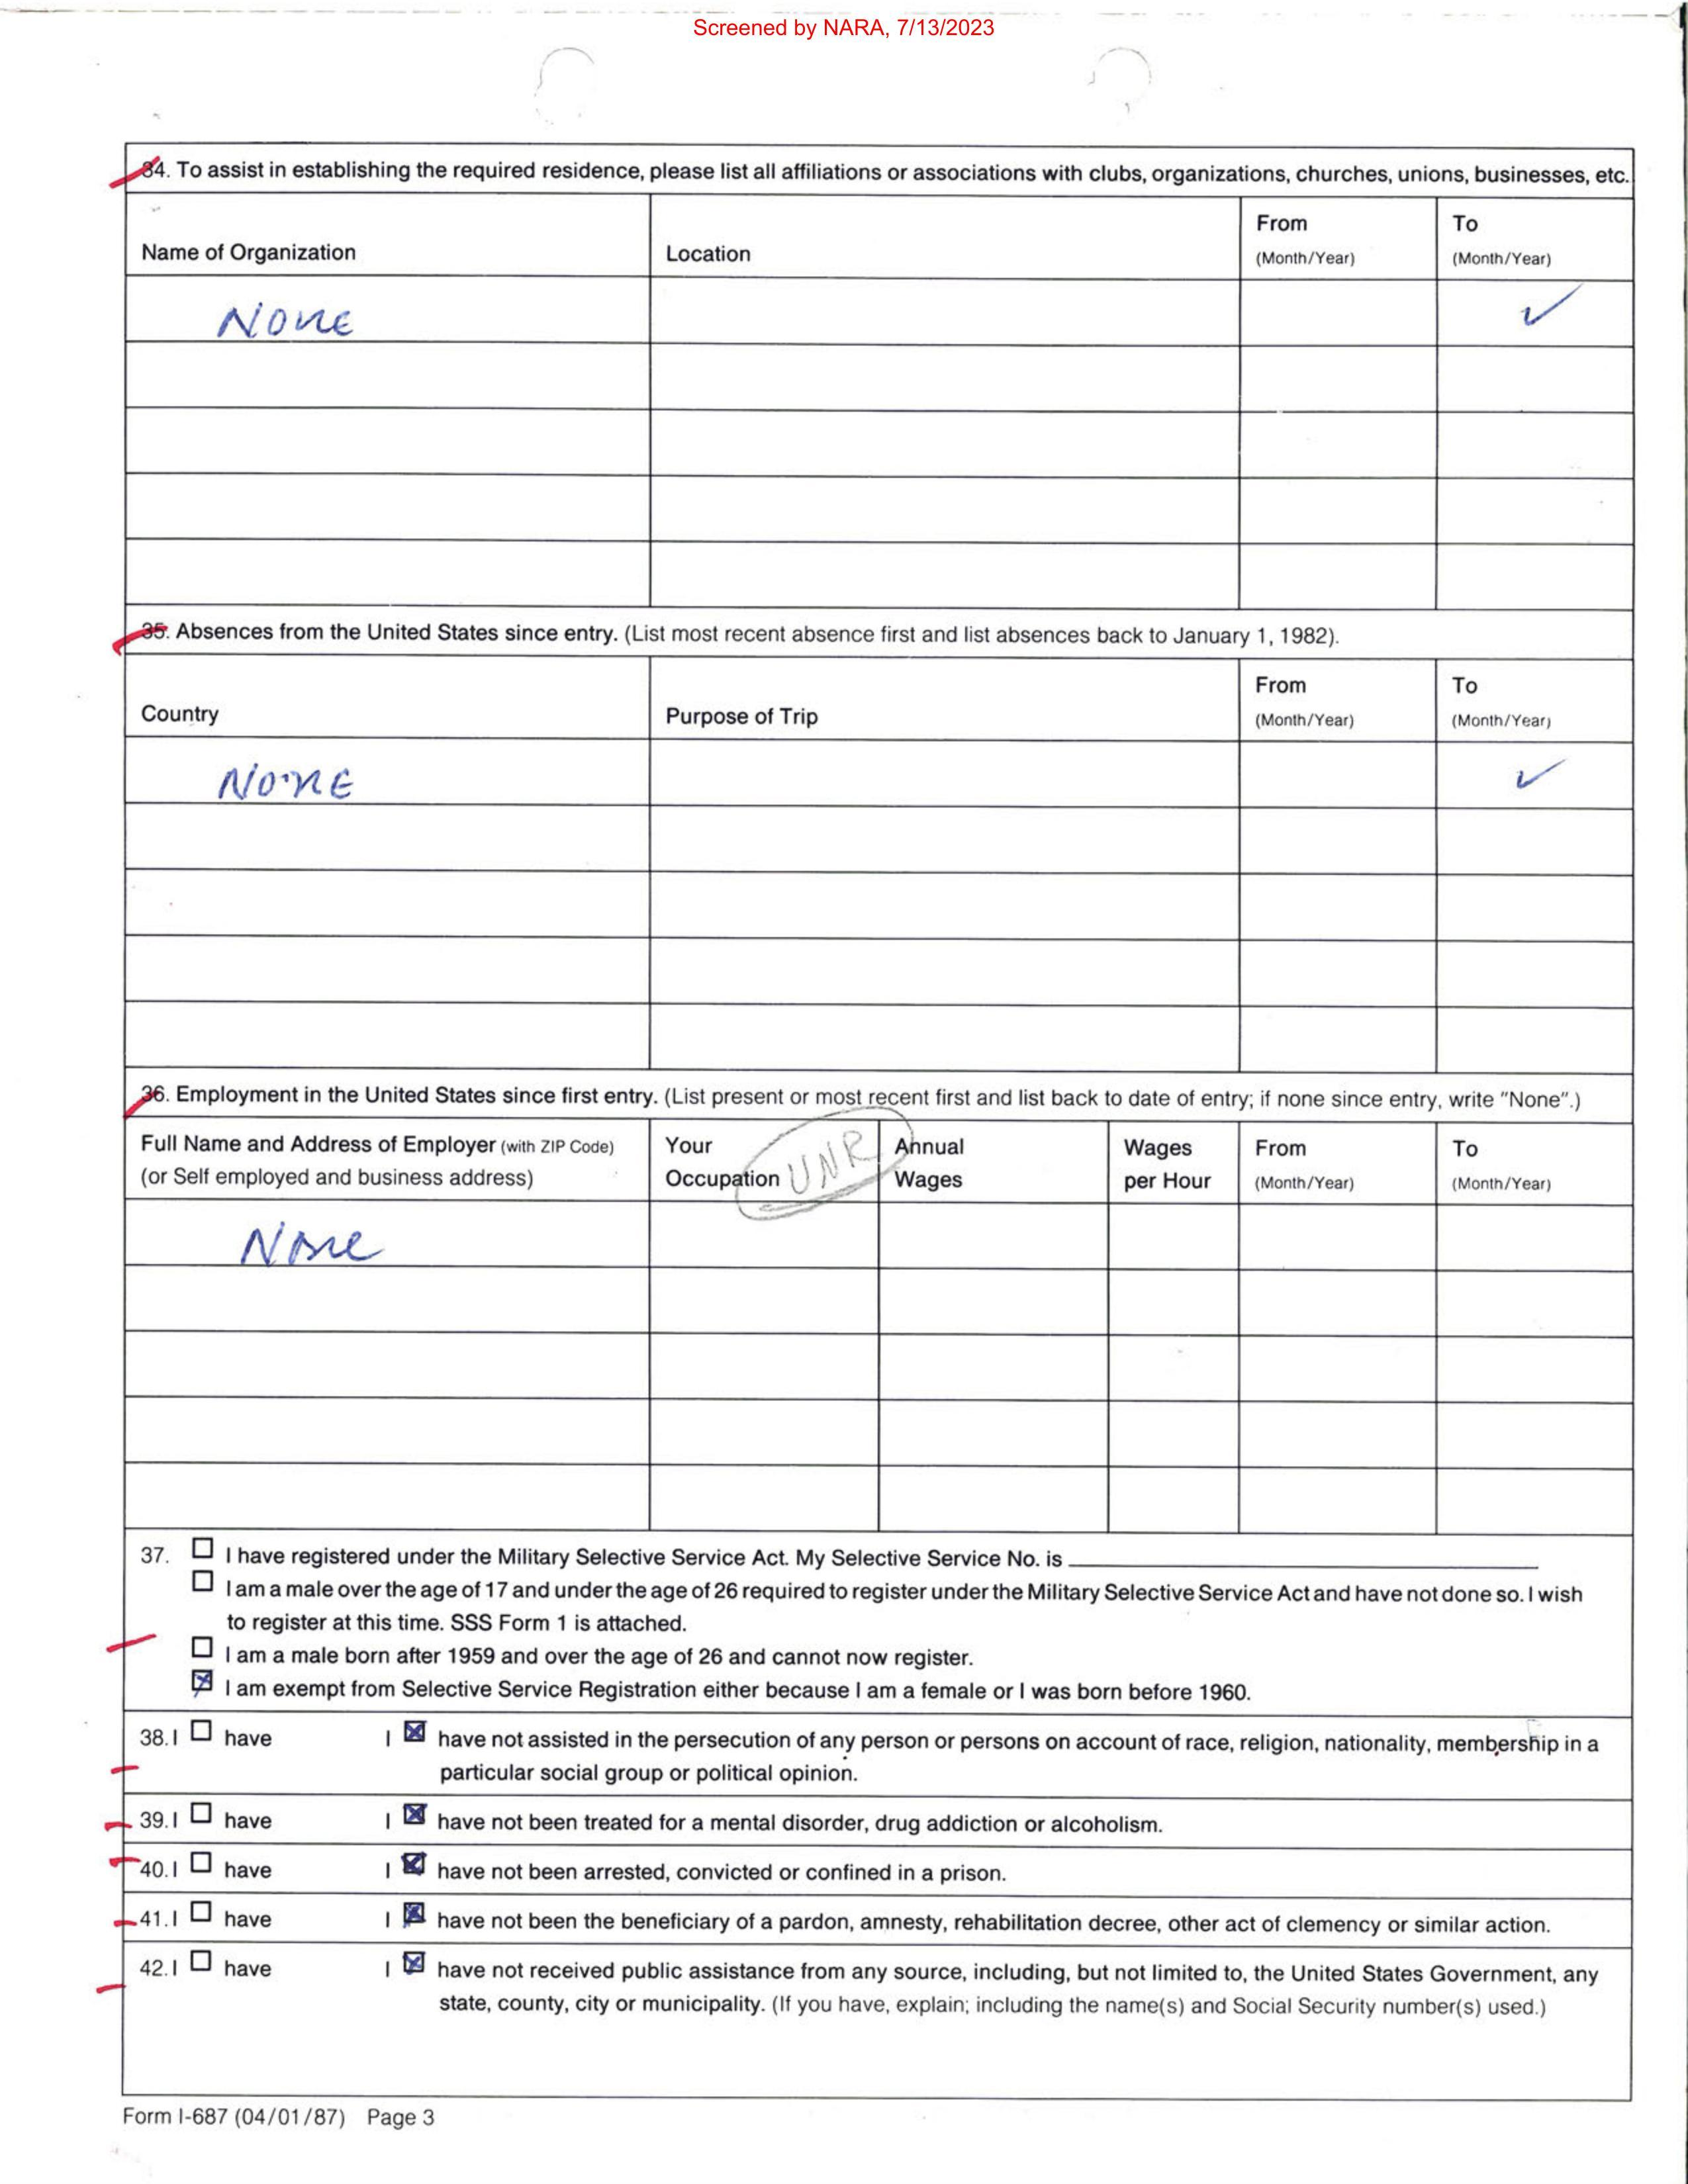 Screened by NARA, 7/13/2023
34. To assist in establishing the required residence, please list all affiliations or associations with clubs, organizations, churches, unions, businesses, etc.
Name of Organization Location From (Month/Year) To (Month/Year)
NONE ✓
35. Absences from the United States since entry. (List most recent absence first and list absences back to January 1, 1982).
Country Purpose of Trip From (Month/Year) To (Month/Year)
NONE ✓
36. Employment in the United States since first entry. (List present or most recent first and list back to date of entry; if none since entry, write "None".)
Full Name and Address of Employer (with ZIP Code) Your Annual Wages From To
(or Self employed and business address) Occupation UNR Wages per Hour (Month/Year) (Month/Year)
None
37. ☐ I have registered under the Military Selective Service Act. My Selective Service No. is
☐ I am a male over the age of 17 and under the age of 26 required to register under the Military Selective Service Act and have not done so. I wish
to register at this time. SSS Form 1 is attached.
☐ I am a male born after 1959 and over the age of 26 and cannot now register.
☒ I am exempt from Selective Service Registration either because I am a female or I was born before 1960.
38. I ☐ have I ☒ have not assisted in the persecution of any person or persons on account of race, religion, nationality, membership in a
particular social group or political opinion.
39. I ☐ have I ☒ have not been treated for a mental disorder, drug addiction or alcoholism.
40. I ☐ have I ☒ have not been arrested, convicted or confined in a prison.
41. I ☐ have I ☒ have not been the beneficiary of a pardon, amnesty, rehabilitation decree, other act of clemency or similar action.
42. I ☐ have I ☒ have not received public assistance from any source, including, but not limited to, the United States Government, any
state, county, city or municipality. (If you have, explain; including the name(s) and Social Security number(s) used.)
Form I-687 (04/01/87) Page 3